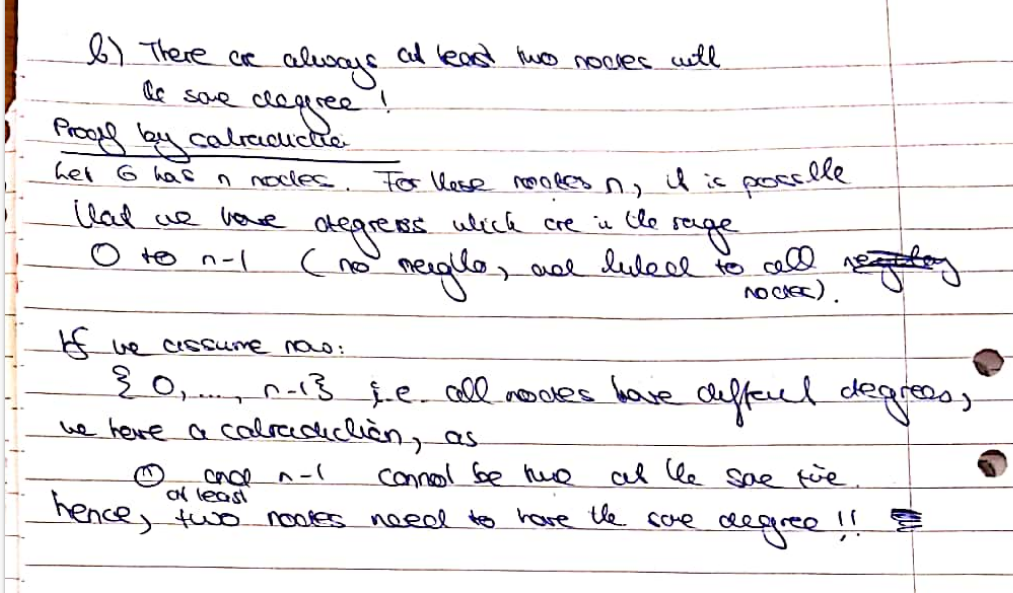 b) There are always at least two nodes with
the same deggree !
Proof by contradiction
Let G has n nodes. For these nodes n, it is possible
that we have degrees which are in the range
0 to n-1 ( no neighb, and linked to all
nodes).
If we assume now:
{ 0, ..., n-1} i.e. all nodes have different degrees,
we have a contradiction, as
0 and n-1 cannot be true at the same time.
at least
hence, two nodes need to have the same degree !!